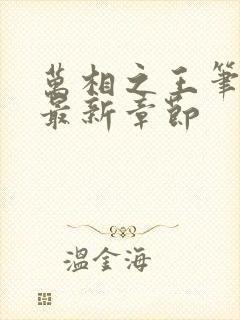 萬相之王筆
最新章節
溫金海